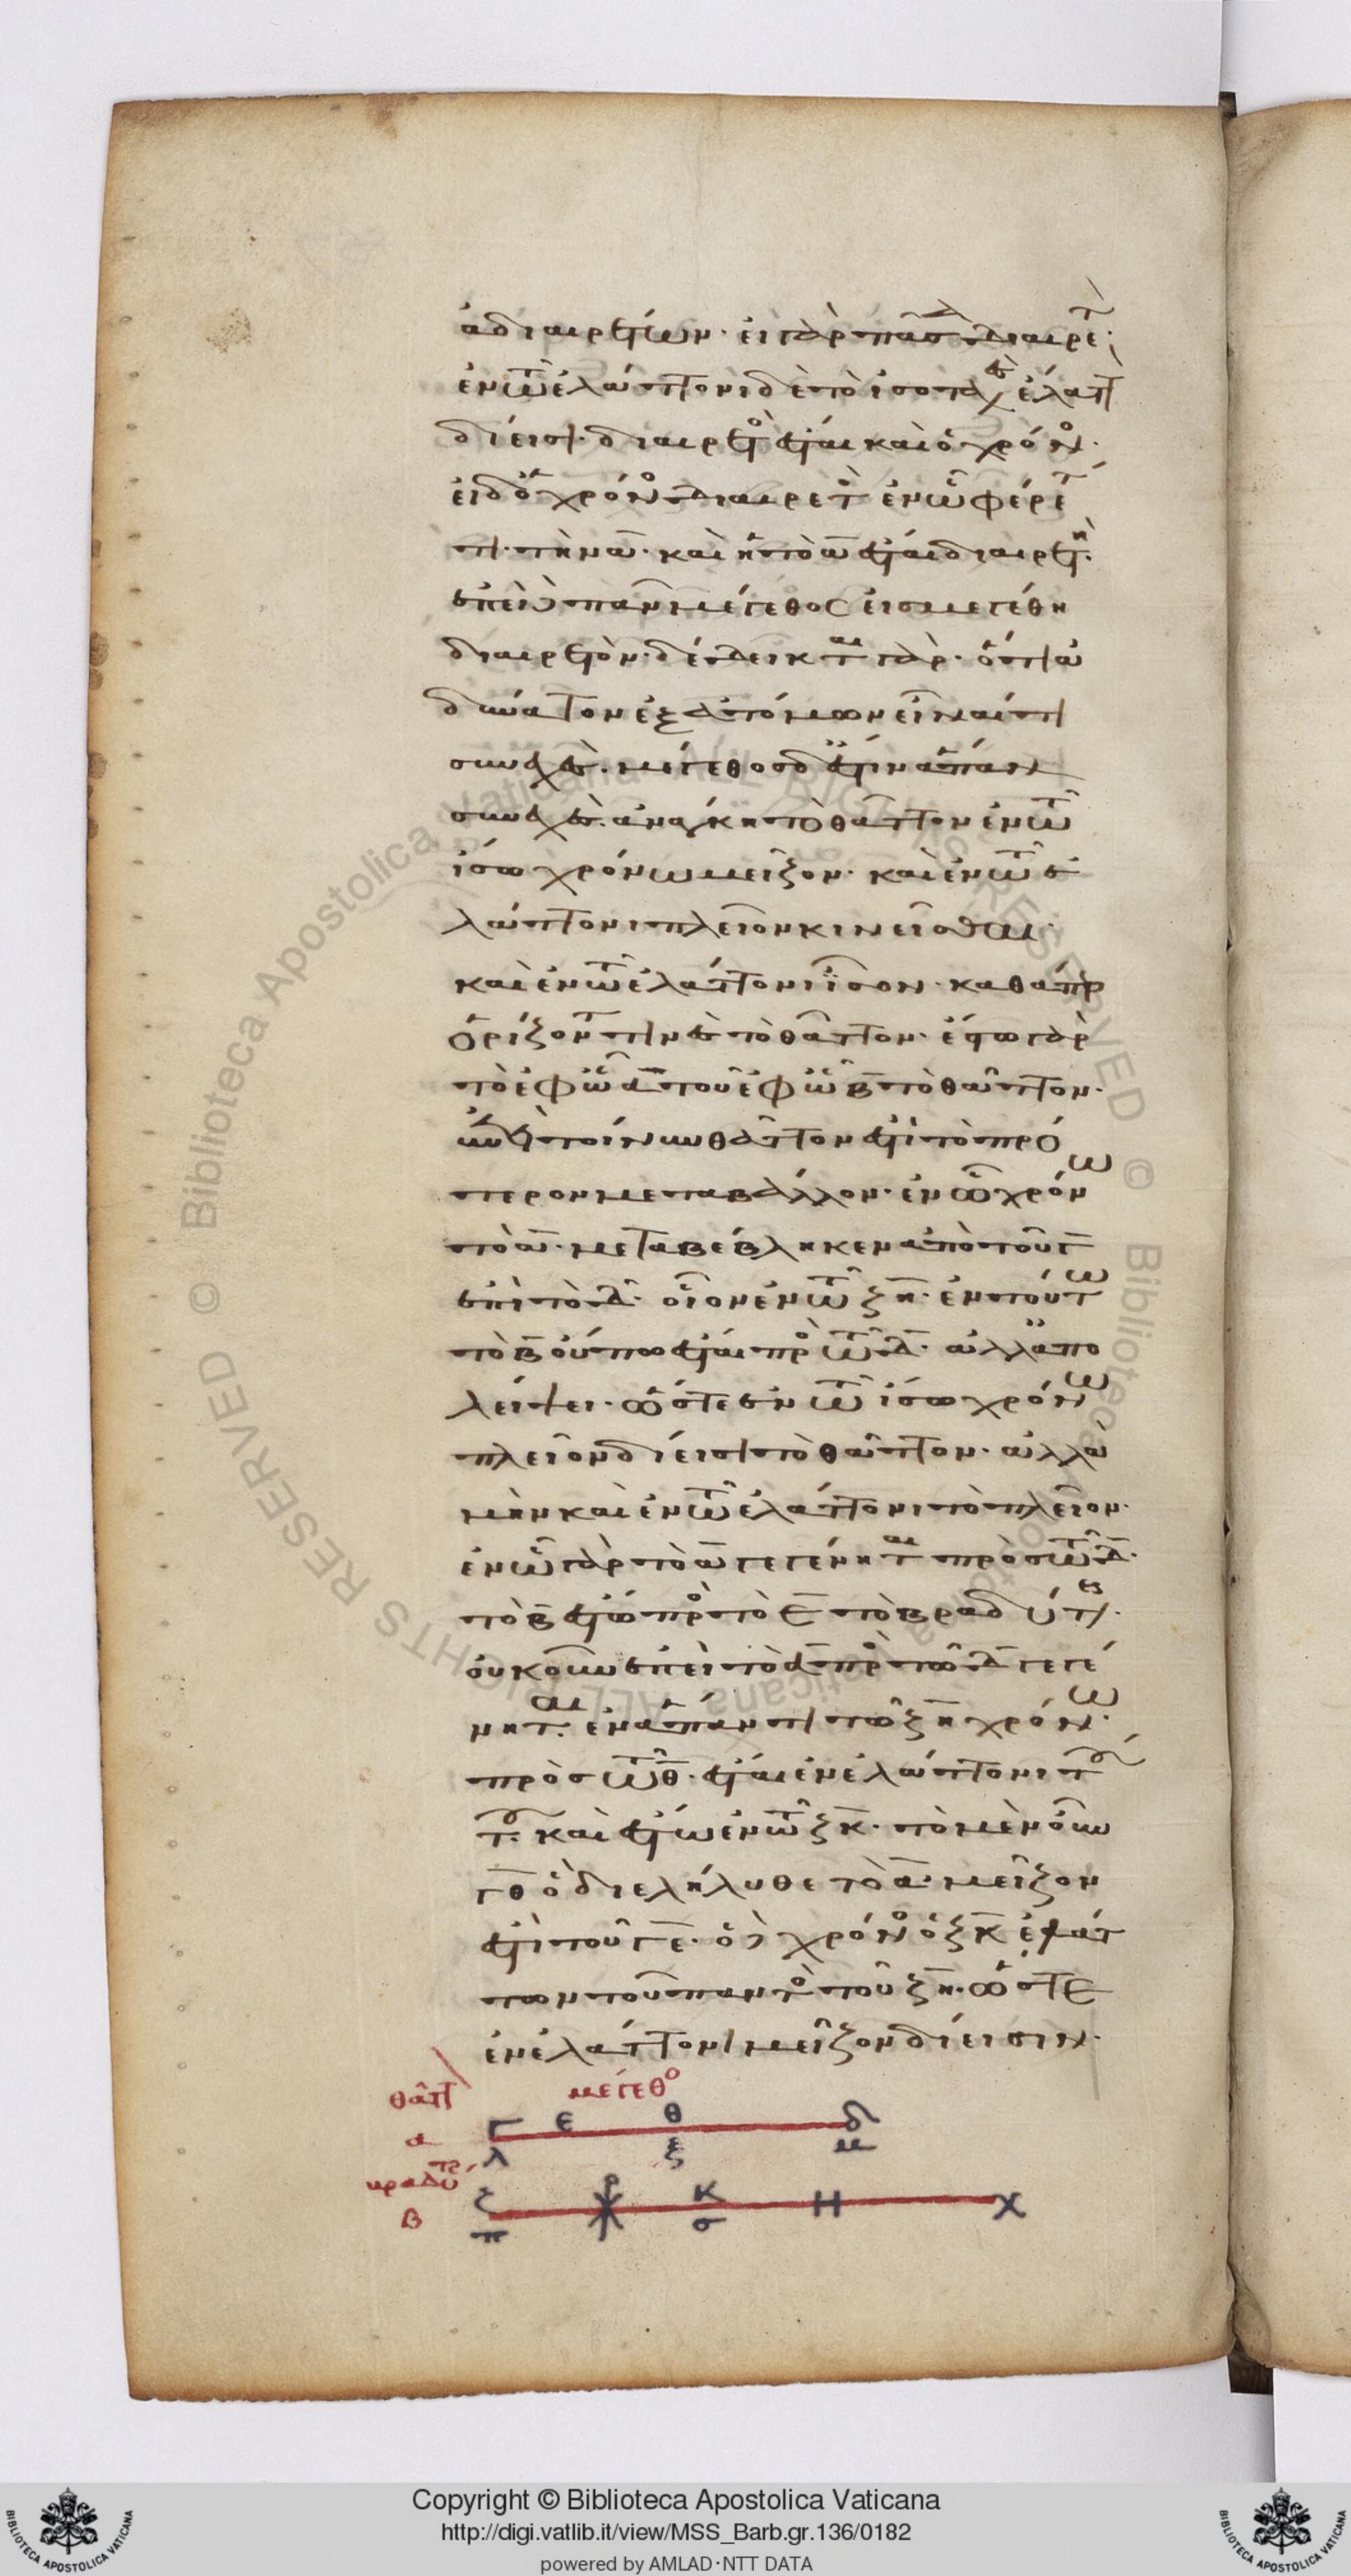 ἀδιαιρέτων· εἰ γὰρ πᾶσ διαιρετ
ἐν τῶ ἐλάττονι δὲ τὸ ἰσοταχὲς ἔλαττ
δίεισι· διαιρετὸς ἔσται καὶ ὁ χρόνος·
εἰ δ' ὁ χρόνος διαιρετὸς ἐν ὧ φέρεται
τι τὴν α· καὶ ἡ τὸ α ἔσται διαιρετή·
ἐπεὶ δὲ πᾶν μέγεθος εἰς μεγέθη
διαιρετὸν· δέδεικται γὰρ· ὅτι ἀ
δύνατον ἐξ ἀτόμων εἶναί τι
συνεχές· μέγεθος δ' ἐστὶν ἅπαν
συνεχές· ἀνάγκη τὸ θᾶττον ἐν τῶ
ἴσω χρόνω μεῖζον· καὶ ἐν τῶ ἐ
λάττονι πλεῖον κινεῖσθαι·
καὶ ἐν τῶ ἐλάττονι ἴσον· καθάπερ
ὁρίζονταί τινες τὸ θᾶττον· ἔστω γὰρ
τὸ ἐφ' ὧ α τοῦ ἐφ' ὧ β τὸ θᾶττον·
ἐπεὶ τοίνυν θᾶττον ἐστὶ τὸ πρό
τερον μεταβάλλον· ἐν ὧ χρόνω
τὸ α· μεταβέβληκεν ἀπὸ τοῦ γ
ἐπὶ τὸ δ· οἷον ἐν τῶ ζη· ἐν τούτω
τὸ β οὔπω ἔσται πρὸς τῶ δ· ἀλλ' ἀπο
λείψει· ὥστε ἐν τῶ ἴσω χρόνω
πλεῖον δίεισι τὸ θᾶττον· ἀλλὰ
μὴν καὶ ἐν τῶ ἐλάττονι τὸ πλεῖον·
ἐν ὧ γὰρ τὸ α γεγένηται πρὸς τῶ δ·
τὸ β ἔστω πρὸς τὸ ε τὸ βραδύτερον·
οὐκοῦν ἐπεὶ τὸ α πρὸς τῶ δ γεγέ
νηται· ἐν ἅπαντι τῶ ζη χρόνω·
πρὸς τῶ θ· ἔσται ἐν ἐλάττονι τού
του· καὶ ἔστω ἐν τῶ ζκ· τὸ μὲν οὖν
γθ ὃ διελήλυθε τὸ α· μεῖζον
ἐστὶ τοῦ γε· ὁ δὲ χρόνος ὁ ζκ ἐλάτ
των τοῦ παντὸς τοῦ ζη· ὥστε
ἐν ἐλάττονι μεῖζον δίεισιν·
θᾶττ μέγεθο
Γ ε θ δ
α
λ ξ μ
βραδύτ
ζ ρ κ Η χ
β
π σ
Copyright © Biblioteca Apostolica Vaticana
http://digi.vatlib.it/view/MSS_Barb.gr.136/0182
powered by AMLAD·NTT DATA